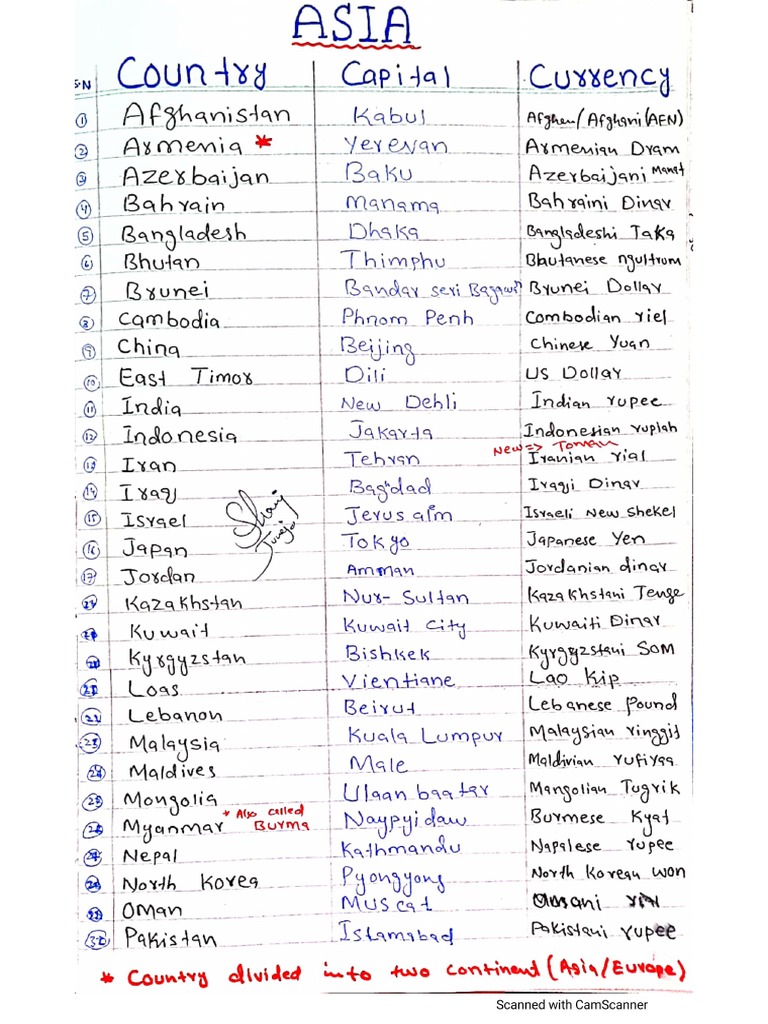 ASIA
S.N Country Capital Currency
1 Afghanistan Kabul Afghan/Afghani(AFN)
2 Armenia * Yerevan Armenian Dram
3 Azerbaijan Baku Azerbaijani Manat
4 Bahrain Manama Bahraini Dinar
5 Bangladesh Dhaka Bangladeshi Taka
6 Bhutan Thimphu Bhutanese ngultrum
7 Brunei Bandar seri Brunei Dollar
8 Cambodia Phnom Penh Combodian riel
9 China Beijing Chinese Yuan
10 East Timor Dili US Dollar
11 India New Dehli Indian rupee
12 Indonesia Jakarta Indonesian rupiah
New=> Toman
13 Iran Tehran Iranian rial
14 Iraq Bagdad Iraqi Dinar
15 Israel Israeli New Shekel
16 Japan Tokyo Japanese Yen
17 Jordan Amman Jordanian dinar
Kazakhstan Nur-Sultan Kazakhstani Tenge
Kuwait Kuwait City Kuwaiti Dinar
Kyrgyzstan Bishkek Kyrgyzstani SOM
21 Loas Vientiane Lao Kip
22 Lebanon Beirut Lebanese Pound
23 Malaysia Kuala Lumpur Malaysian ringgit
24 Maldives Male Maldivian rufiyaa
25 Mongolia Ulaan baatar Mangolian Tugrik
26 Myanmar * Also called Burma Naypyidaw Burmese Kyat
27 Nepal Kathmandu Napalese rupee
North Korea Pyongyong North Korean won
Oman Muscat Omani
30 Pakistan Islamabad Pakistani rupee
* Country divided into two continent (Asia/Europe)
Scanned with CamScanner